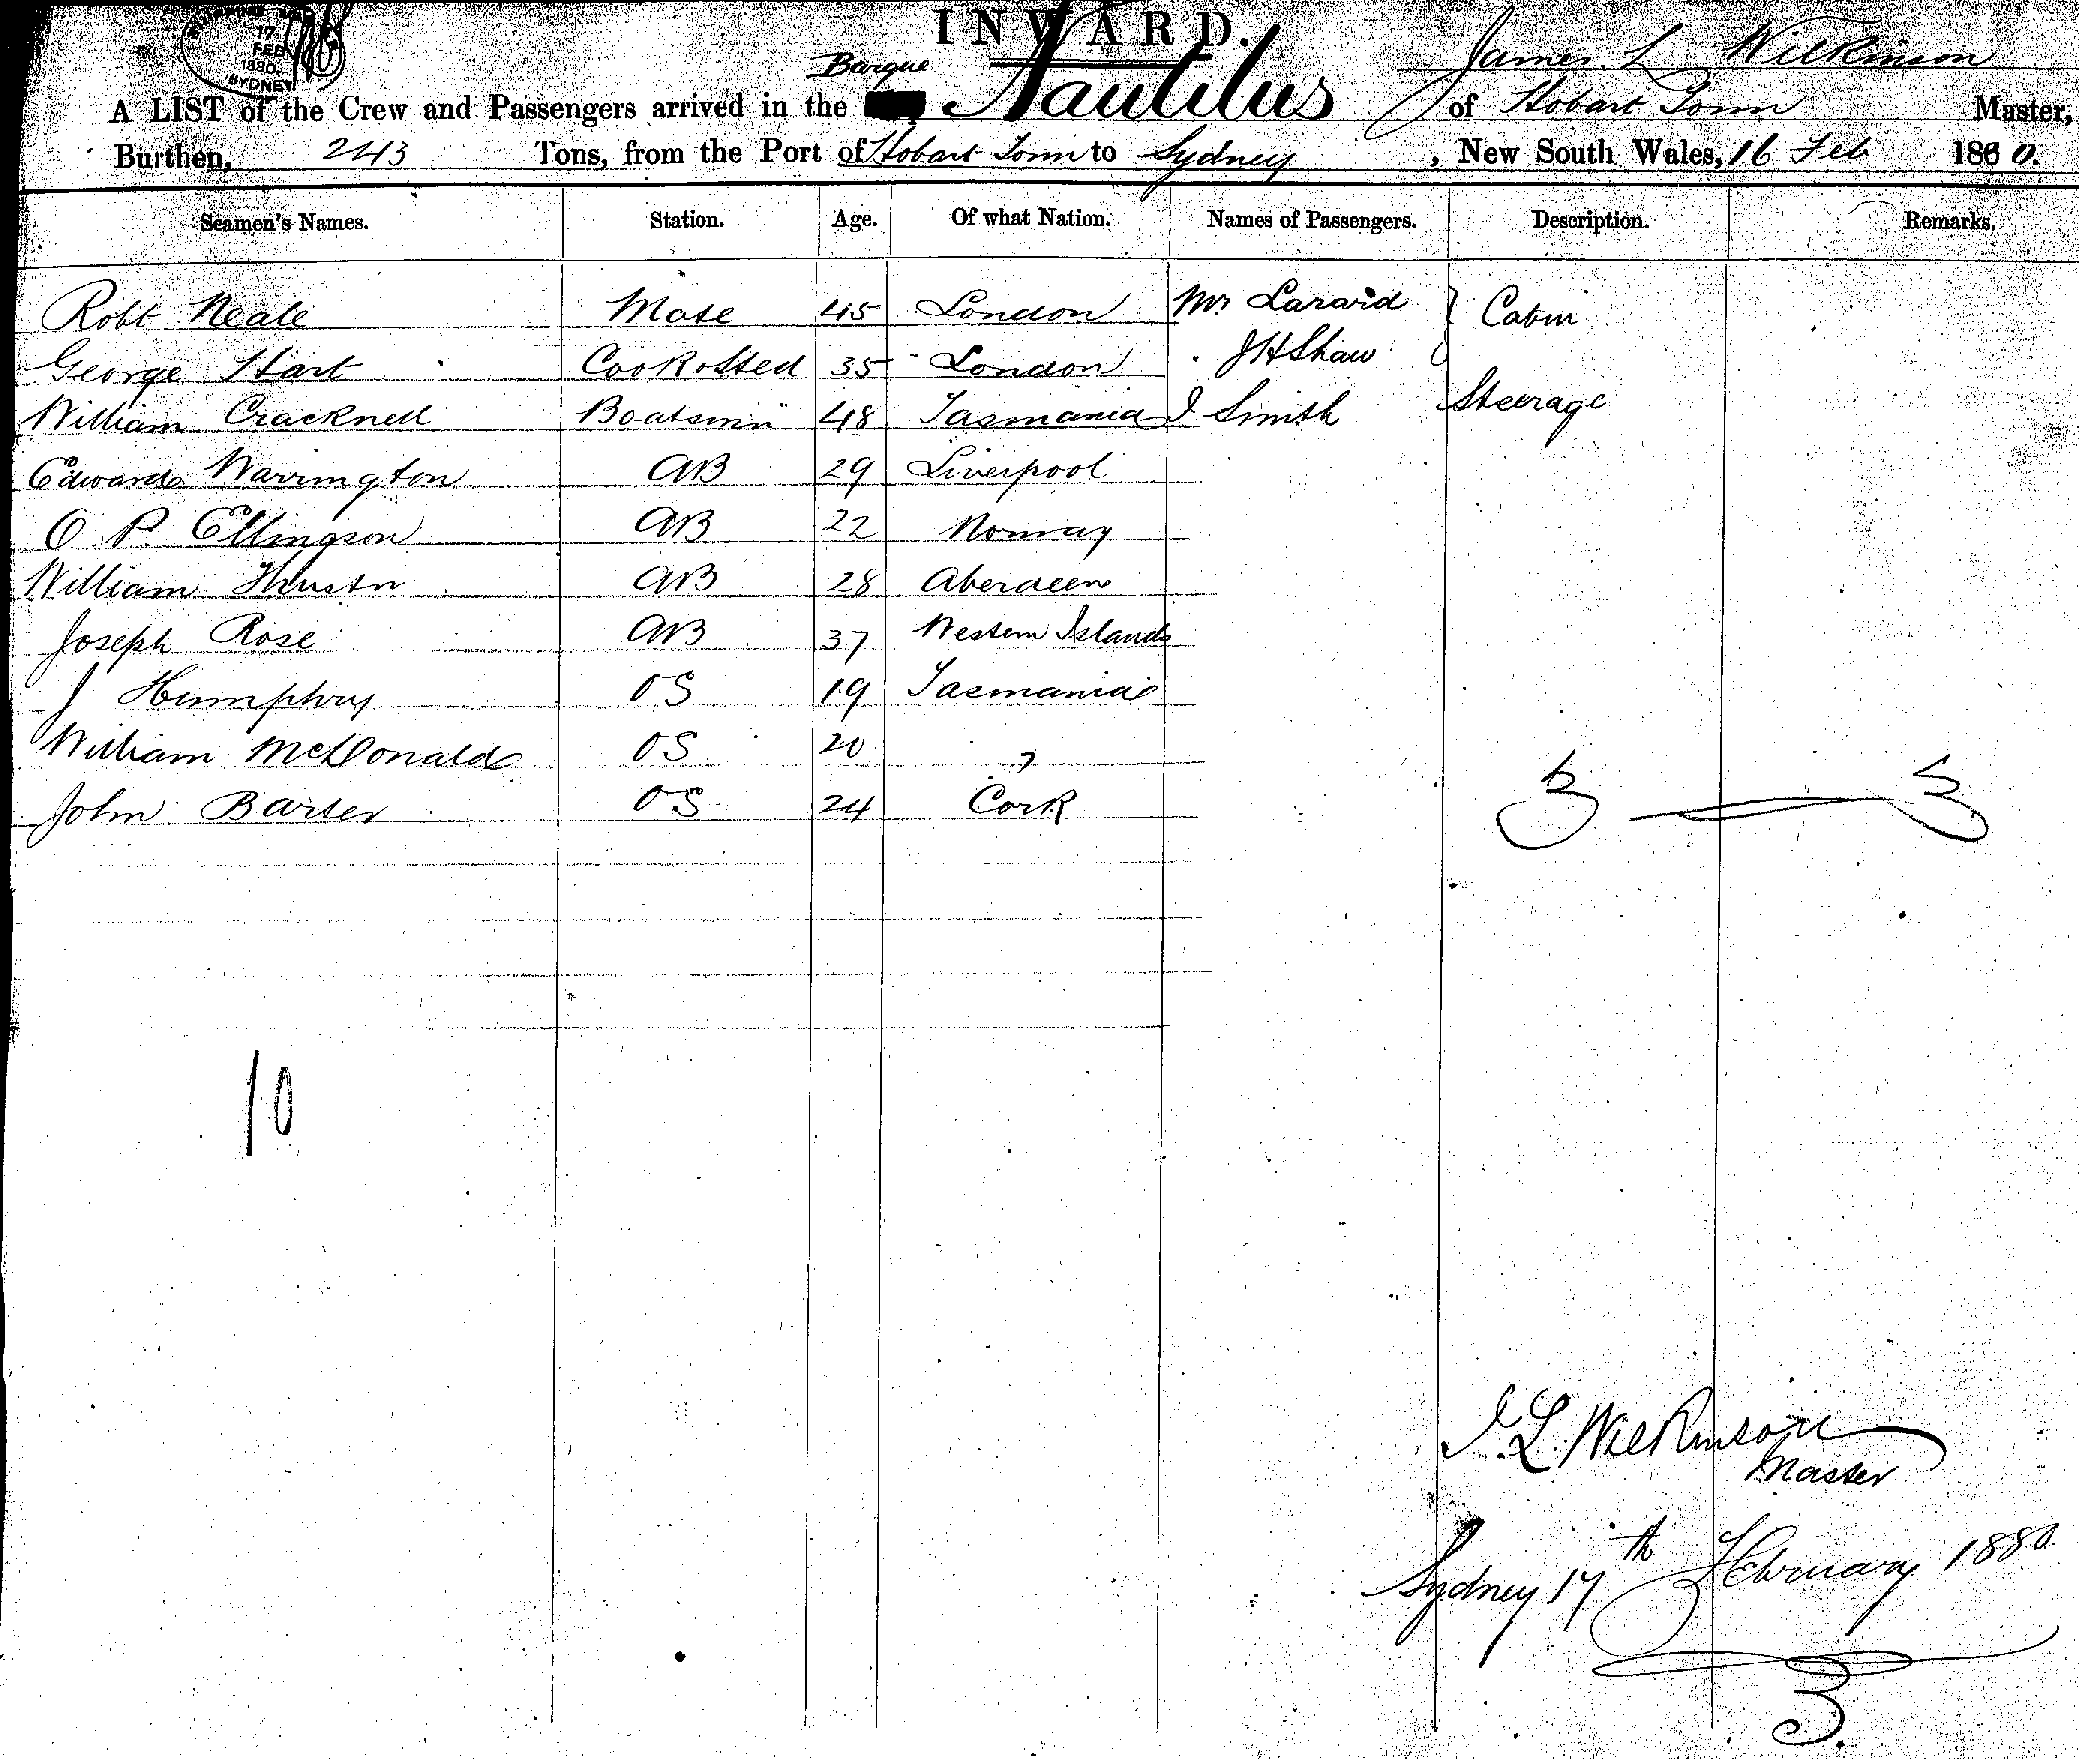 17
FEB
1880
SYDNEY
INWARD.
James L Wilkinson
Barque
A LIST of the Crew and Passengers arrived in the Nautilus of Hobart Town Master,
Burthen, 243 Tons, from the Port of Hobart Town to Sydney, New South Wales, 16 Feb 1880.
Seamen's Names. Station. Age. Of what Nation. Names of Passengers. Description. Remarks.
Robt Neale Mate 45 London Mr Larard } Cabin
George Hart Cook & Sted 35 London J H Shaw
William Cracknell Boatsmn 48 Tasmania J Smith Steerage
Edward Warrington AB 29 Liverpool
O P. Ellingson AB 22 Norway
William AB 28 Aberdeen
Joseph Rose AB 37 Western Islands
J Humphry OS 19 Tasmania
William McDonald OS 20 "
John Barter OS 24 Cork
3 3
10
J. L. Wilkinson
Master
Sydney 17th February 1880
3.